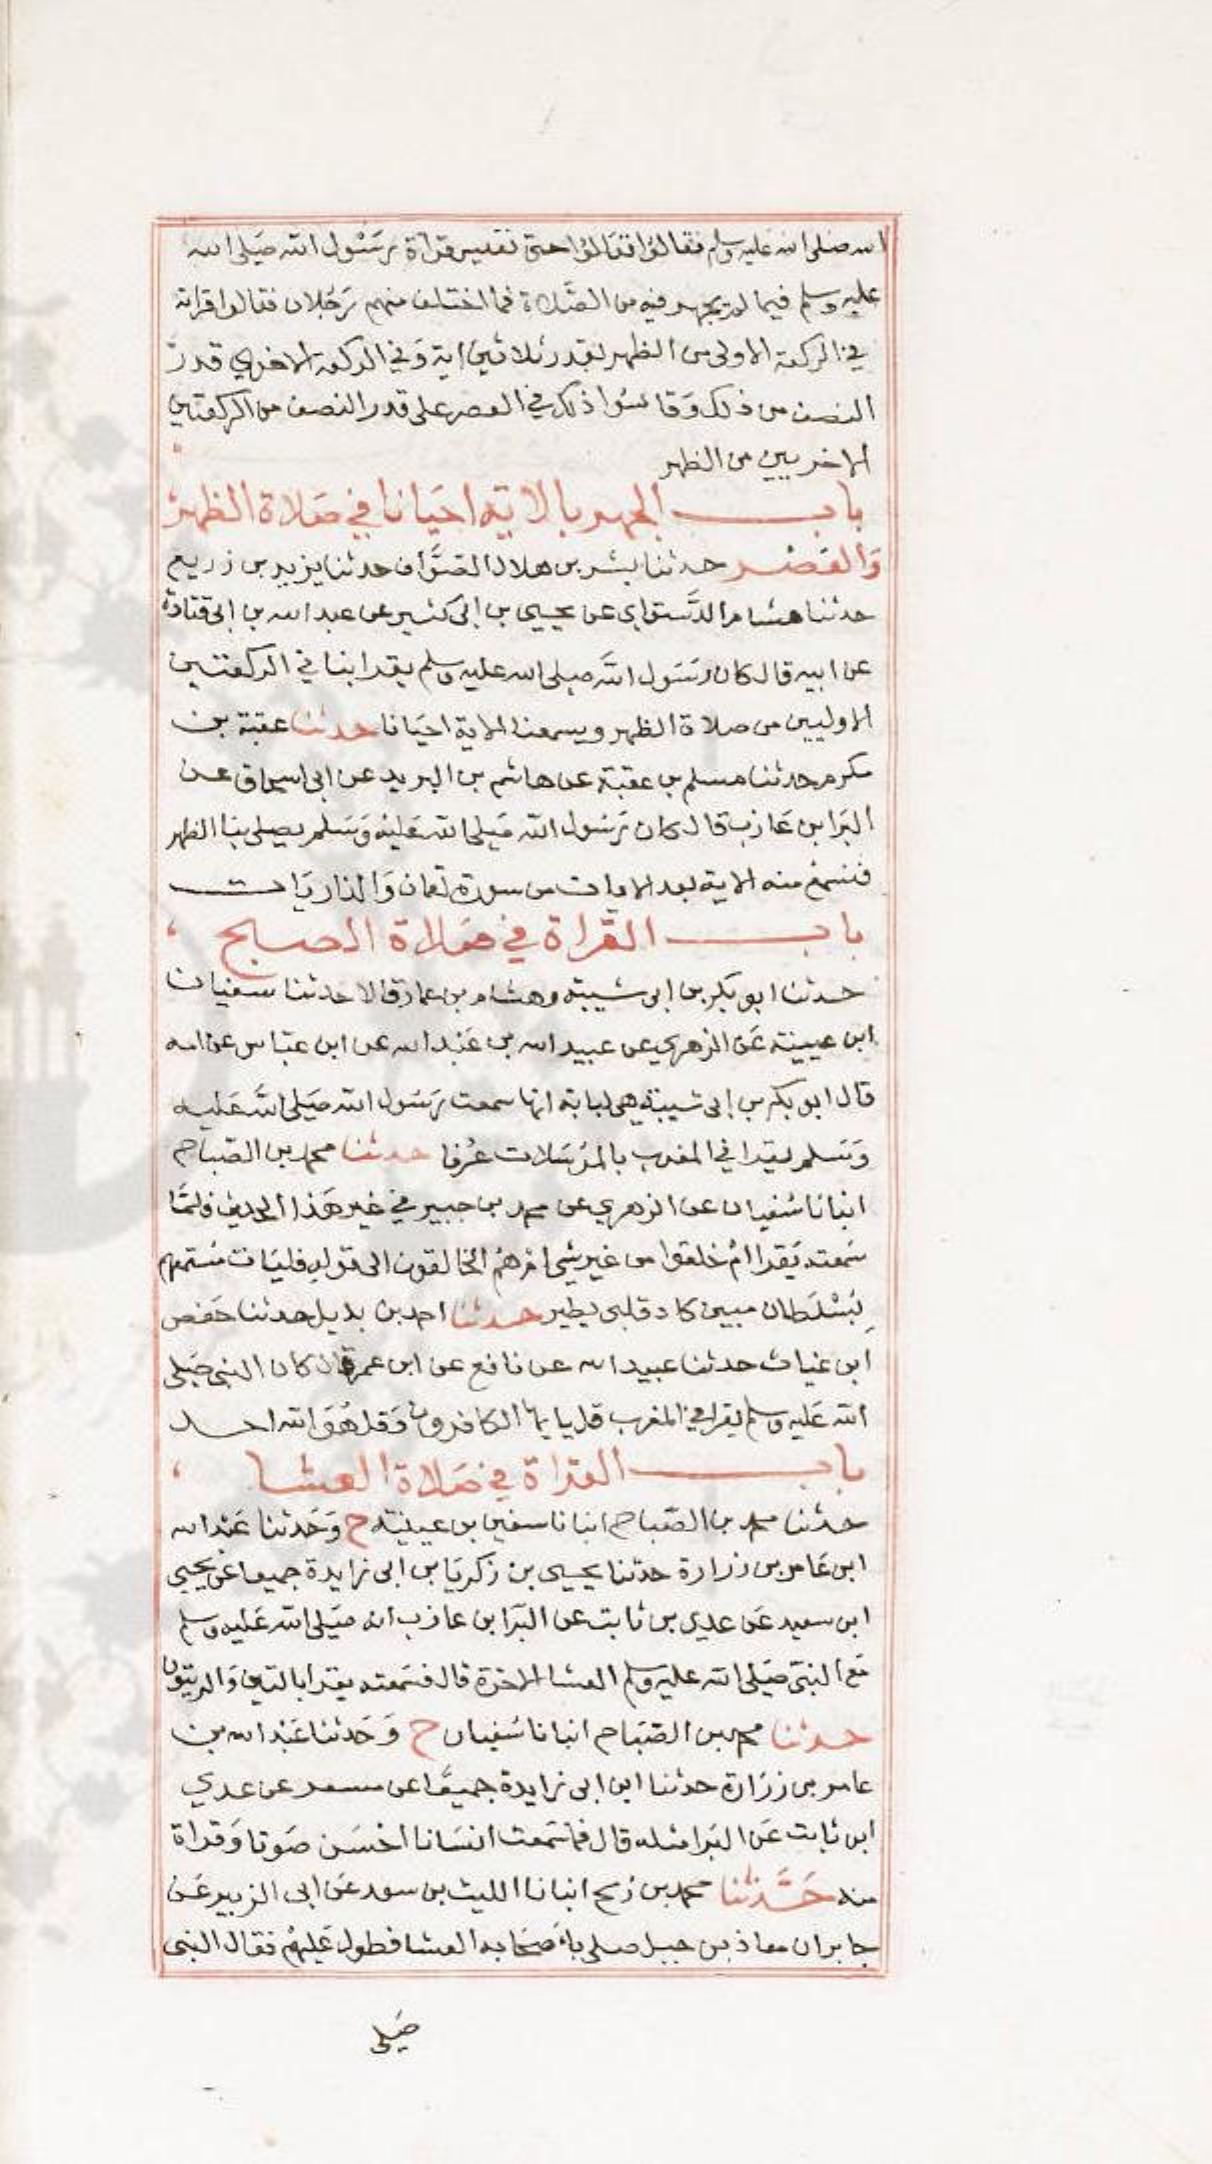 الله صلى الله عليه وسلم فقالوا تعالوا حتى نقيس قراة رسول الله صلى الله
عليه وسلم فيما لم يجهر فيه من الصلاة فما اختلف منهم رجلان فقالوا قراته
في الركعة الاولى من الظهر بقدر ثلاثين اية وفي الركعة الاخرى قدر
النصف من ذلك وقاسوا ذلك في العصر على قدر النصف من الركعتين
الاخريين من الظهر
باب الجهر بالاية احيانا في صلاة الظهر
والعصر حدثنا بشر بن هلال الصواف حدثنا يزيد بن زريع
حدثنا هشام الدستواي عن يحيى بن ابي كثير عن عبد الله بن ابي قتادة
عن ابيه قال كان رسول الله صلى الله عليه وسلم يقرا بنا في الركعتين
الاوليين من صلاة الظهر ويسمعنا الاية احيانا حدثنا عقبة بن
مكرم حدثنا مسلم بن عقبة عن هاشم بن البريد عن ابي اسحاق عن
البرا بن عازب قال كان رسول الله صلى الله عليه وسلم يصلي بنا الظهر
فنسمع منه الاية بعد الايات من سورة لقمان والذاريات
باب القراة في صلاة الصبح
حدثنا ابو بكر بن ابي شيبة وهشام بن عمار قالا حدثنا سفيان
ابن عيينة عن الزهري عن عبيد الله بن عبد الله عن ابن عباس عن امه
قال ابو بكر بن ابي شيبة هي لبابة انها سمعت رسول الله صلى الله عليه
وسلم يقرا في المغرب بالمرسلات عرفا حدثنا محمد بن الصباح
انبانا سفيان عن الزهري عن محمد بن جبير في غير هذا الحديث فلما
سمعته يقرا ام خلقوا من غير شي ام هم الخالقون الى قوله فليات مستمعهم
بسلطان مبين كاد قلبي يطير حدثنا احمد بن بديل حدثنا حفص
ابن غياث حدثنا عبيد الله عن نافع عن ابن عمر قال كان النبي صلى
الله عليه وسلم يقرا في المغرب قل يا يها الكافرون وقل هو الله احد
باب القراة في صلاة العشا
حدثنا محمد بن الصباح انبانا سفين بن عيينة ح وحدثنا عبد الله
ابن عامر بن زرارة حدثنا يحيى بن زكريا بن ابي زايدة جميعا عن يحيى
ابن سعيد عن عدي بن ثابت عن البرا بن عازب انه صلى الله عليه وسلم
مع النبي صلى الله عليه وسلم العشا الاخرة قال فسمعته يقرا بالتين والزيتون
حدثنا محمد بن الصباح انبانا سفيان ح وحدثنا عبد الله بن
عامر بن زرارة حدثنا ابن ابي زايدة جميعا عن مسعر عن عدي
ابن ثابت عن البرا مثله قال فما سمعت انسانا احسن صوتا وقراة
منه حدثنا محمد بن رمح انبانا الليث بن سعد عن ابي الزبير عن
جابر ان معاذ بن جبل صلى باصحابه العشا فطول عليهم فقال النبي
صلى